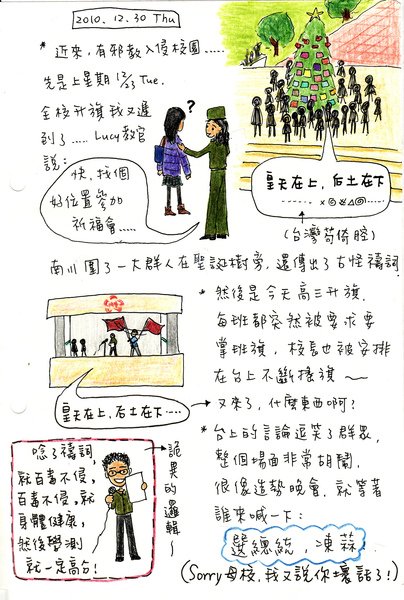 2010. 12. 30 Thu
* 近來,有邪教入侵校園......
先是上星期 12/23 Tue.
全校升旗我又遲
到了..... Lucy教官
說:
?
快,找個
好位置參加
祈福會....
皇天在上,后土在下
(台灣苟倚腔)
南川圍了一大群人在聖誕樹旁,還傳出了古怪禱詞
* 然後是今天高三升旗.
每班都突然被要求要
拿班旗,校長也被安排
在台上不斷搖旗~
皇天在上,后土在下....
又來了,什麼東西啊?
* 台上的言論逗笑了群眾,
整個場面非常胡鬧.
很像造勢晚會.就等著
誰來喊一下:
選總統,凍蒜
(Sorry母校,我又說你壞話了!)
唸了禱詞,
就百毒不侵,
百毒不侵,就
身體健康,
然後學測
就一定高分!
詭異的邏輯~